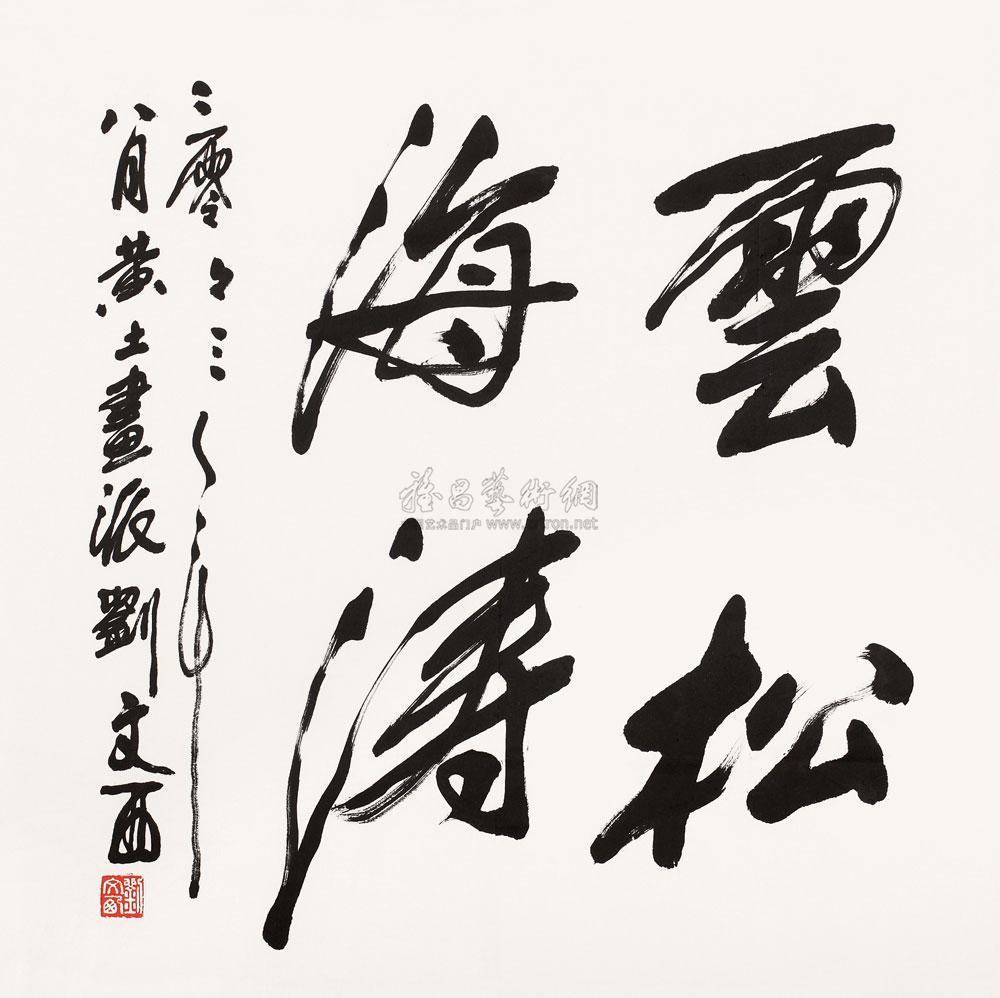 雲海
松濤
二零
八月黄土畫派劉文西
劉文西
雅昌藝術網
艺术品门户 www.artron.net